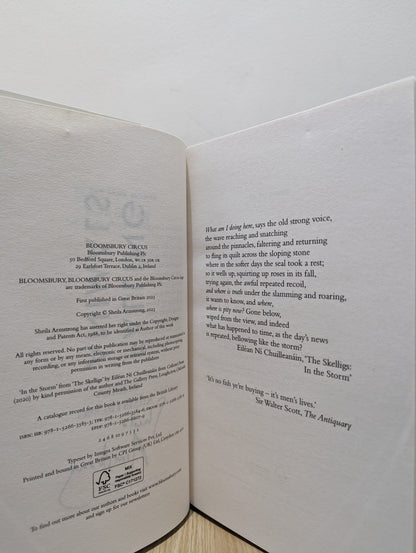 BLOOMSBURY CIRCUS
Bloomsbury Publishing Plc
50 Bedford Square, London, WC1B 3DP, UK
29 Earlsfort Terrace, Dublin 2, Ireland
BLOOMSBURY, BLOOMSBURY CIRCUS and the Bloomsbury Circus logo
are trademarks of Bloomsbury Publishing Plc
First published in Great Britain 2023
Copyright © Sheila Armstrong, 2023
Sheila Armstrong has asserted her right under the Copyright, Designs
and Patents Act, 1988, to be identified as Author of this work
All rights reserved. No part of this publication may be reproduced or transmitted in
any form or by any means, electronic or mechanical, including photocopying,
recording, or any information storage or retrieval system, without prior
permission in writing from the publishers
'In the Storm' from 'The Skelligs' by Eiléan Ní Chuilleanáin from
(2020) by kind permission of the author and The Gallery Press, Loughcrew, Oldcastle,
County Meath, Ireland
A catalogue record for this book is available from the British Library
2 4 6 8 10 9 7 5 3 1
Typeset by Integra Software Services Pvt. Ltd.
Printed and bound in Great Britain by CPI Group (UK) Ltd, Croydon
FSC
www.fsc.org
MIX
FSC® C171272
To find out more about our authors and books visit www.bloomsbury.com
and sign up for our newsletters
What am I doing here, says the old strong voice,
the wave reaching and snatching
around the pinnacles, faltering and returning
to fling its quilt across the sloping stone
where in the softer days the seal took a rest;
so it wells up, squirting up roses in its fall,
trying again, the awful repeated recoil,
and where is truth under the slamming and roaring,
it wants to know, and where,
where is pity now? Gone below,
wiped from the view, and indeed
what has happened to time, as the day's news
is repeated, bellowing like the storm?
Eiléan Ní Chuilleanáin, 'The Skelligs:
In the Storm'
'It's no fish ye're buying – it's men's lives.'
Sir Walter Scott, The Antiquary